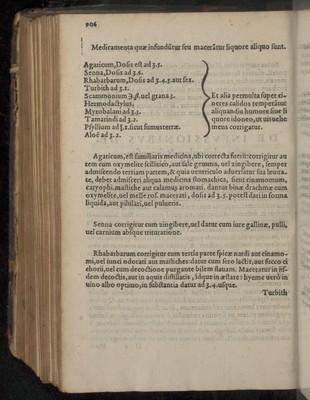 906
Medicamenta quæ infundūtur seu macerātur liquore aliquo sunt.
Agaricum, Dosis est ad ʒ.j.
Senna, Dosis ad ʒ.6.
Rhabarbarum, Dosis ad ʒ.4.5. aut sex.
Turbith ad ʒ.j.
Scammonium ℈.ß. uel grana
Hermodactylus,
Myrobalani ad ʒ.j.
Tamarindi ad ʒ.2.
Psyllium ad
Aloë ad ʒ.2.
Et alia permulta super cineres calidos temperātur
aliquandiu humore siue liquore idoneo, ut uit uehemeus corrigatur.
Agaricum, est familiaris medicina, ubi correcta fuerit: corrigitur autem
cum oxymelite scillitico, aut sale gemma, uel zingibere, semper
admiscendo tertiam partem, & quia uentriculo aduersatur sua leuitate,
debet admisceri aliqua medicina stomachica, sicut cinamomum,
caryophi. mastiche aut calamus aromati. dantur binæ drachmæ cum
oxymelite, uel melle ros. macerati, dosis ad ʒ.5. potest dari in forma
liquida, aut pilulari, uel pulueris.
Senna corrigitur cum zingibere, uel datur cum iure gallinæ, pulli,
uel carnium absque trituratione.
Rhabarbarum corrigitur cum tertia parte spicæ nardi aut cinamomi,
uel iunci odorati aut mastiches: datur cum sero lactis, aut succo cichorii,
uel cum decoctione purgante bilem flauam. Maceratur in iisdem
decoctis, aut in aquis distillatis, idque in æstate: hyeme uerò in
uino albo optimo, in substantia datur ad ʒ.4. usque.
Turbith